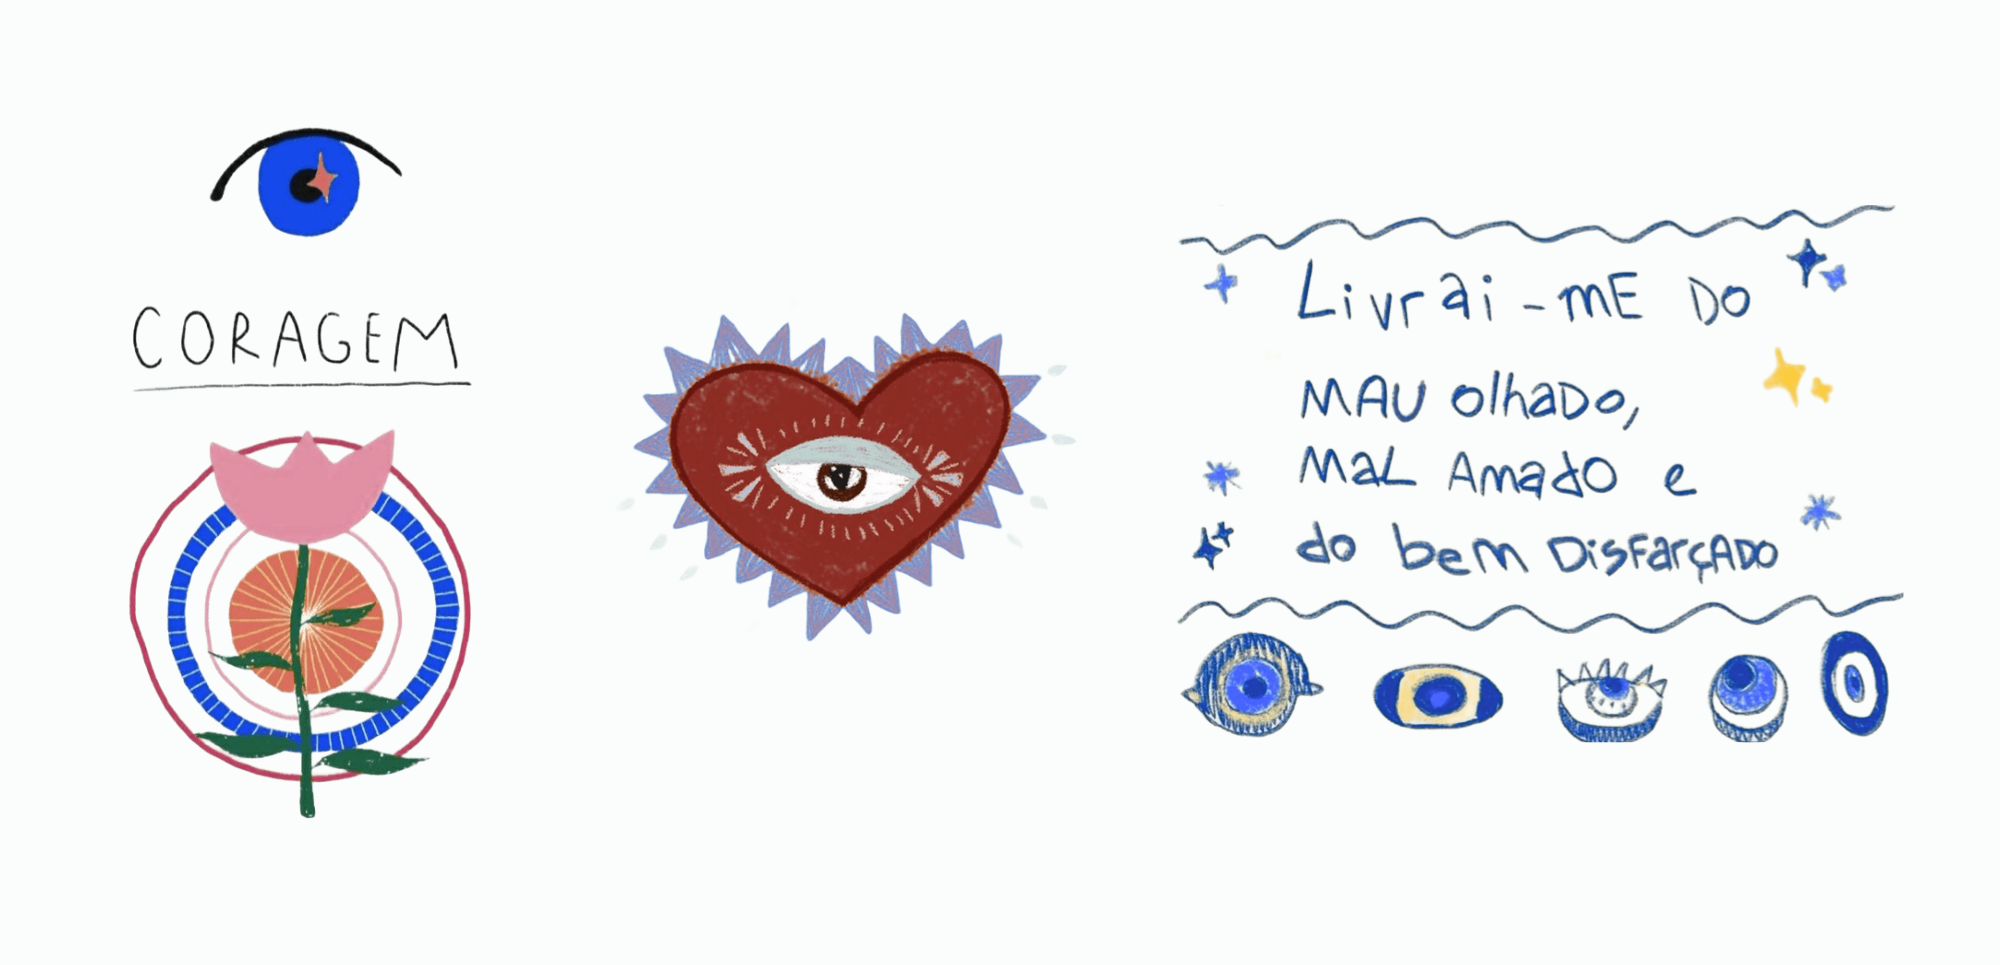 CORAGEM
Livrai-mE DO
MAU olhaDo,
MaL AmadO e
do bem DisFarçADO